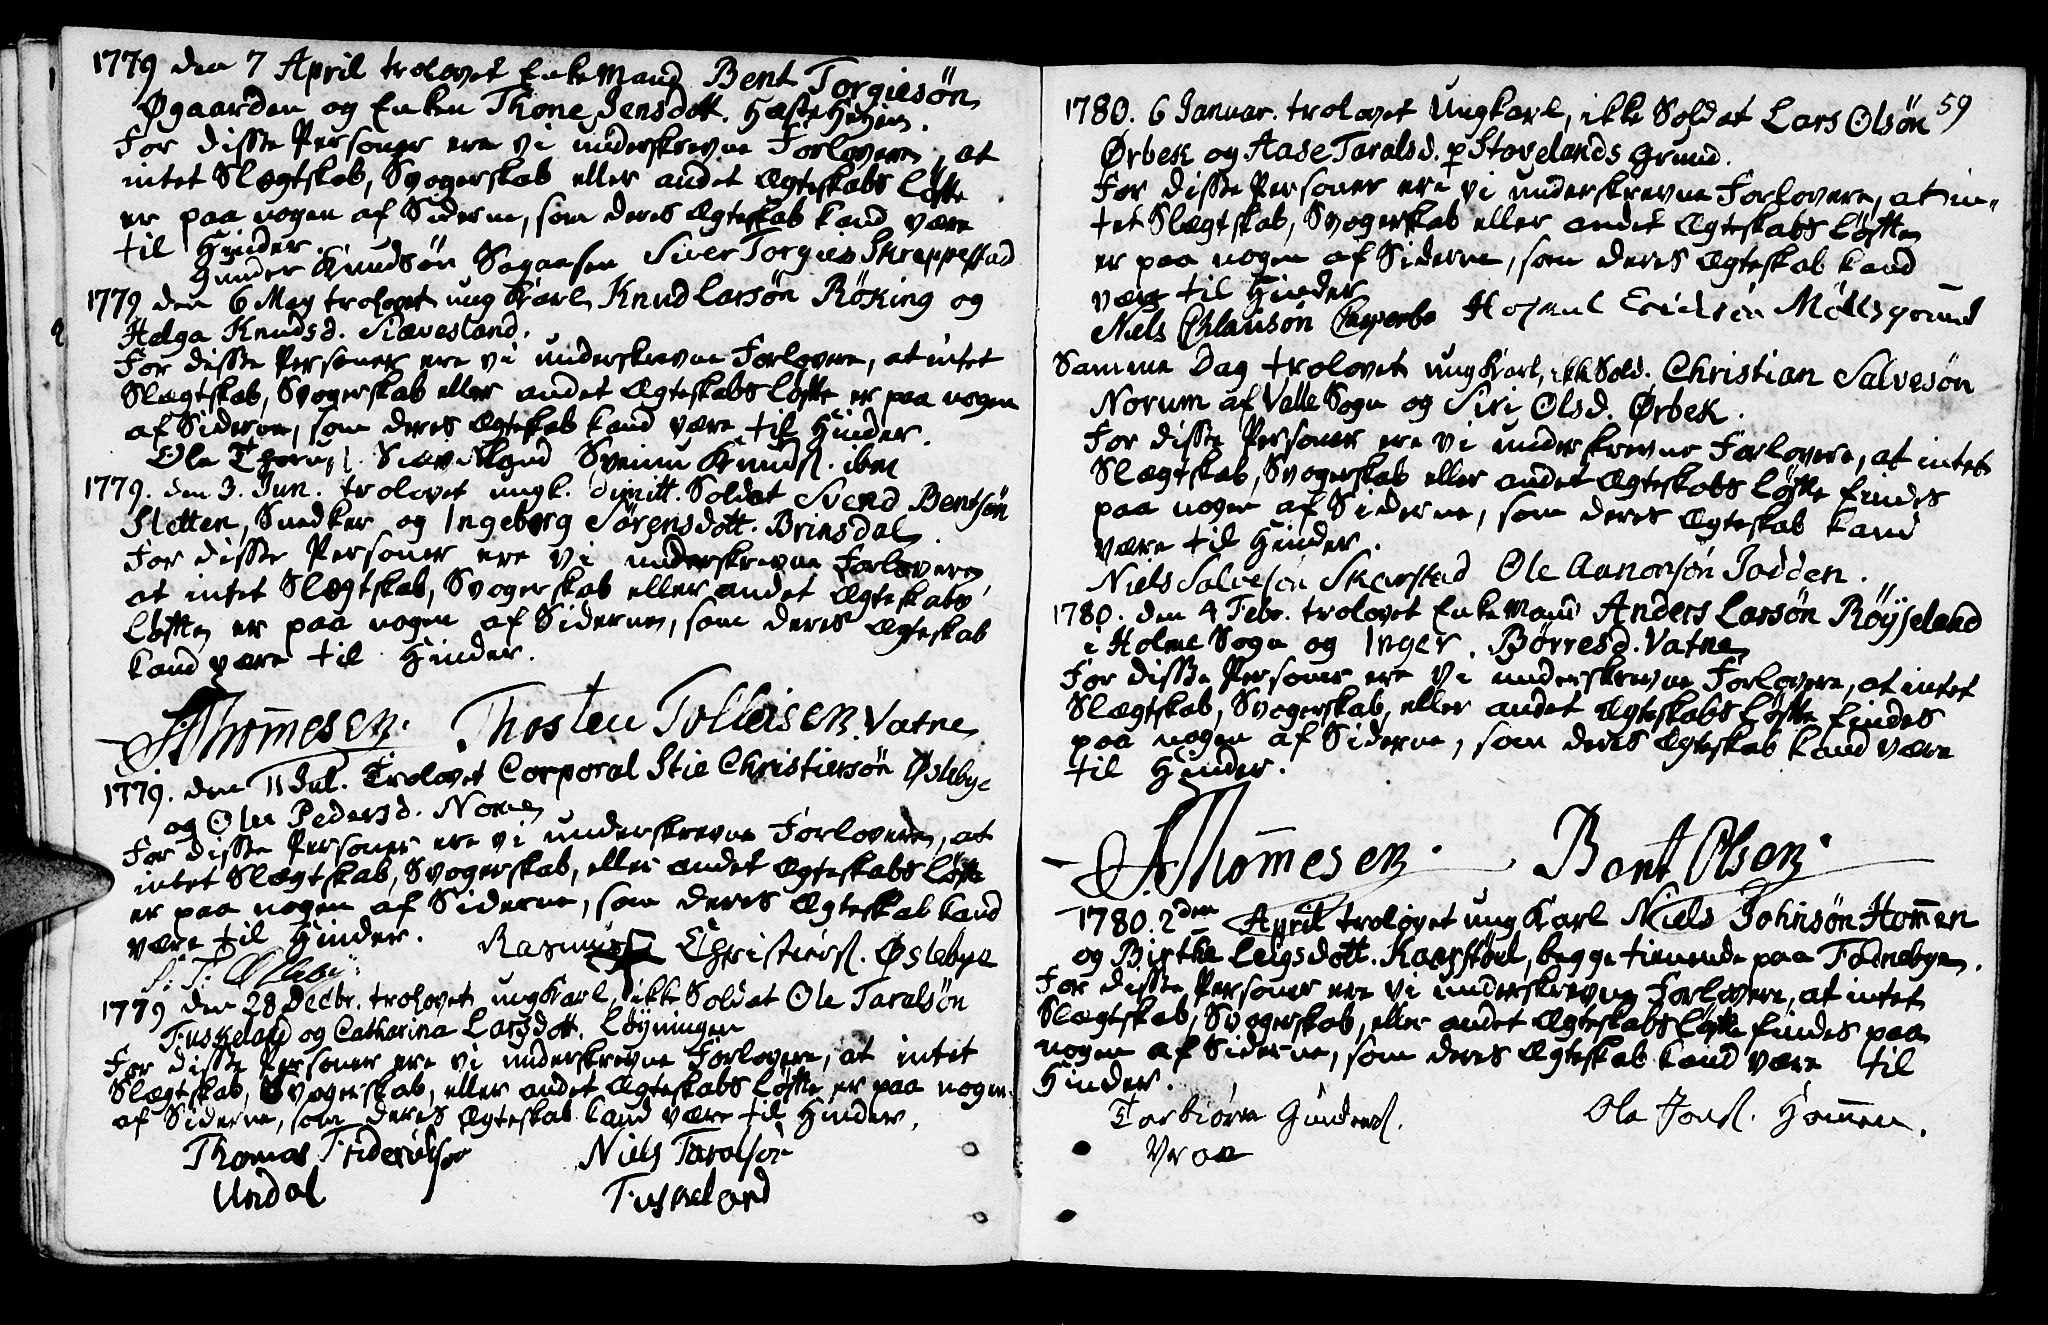 1779 den 7 April trolovet Enkemand Bent Torgiesøn
Øgaarden og Enken Thone Jensdott.
For disse Personer ere vi underskrevne Forlovere, at
intet Slægtskab, Svogerskab eller andet Ægteskabs Løfte
er paa nogen af Siderne, som deres Ægteskab kand være
til Hinder.
Gunder Knudsøn Søgaarden Siver Torgies Skreppestad
1779 den 6 May trolovet ung Karl Knud Larsøn Røking og
Helga Knudsd. Siævesland.
For disse Personer ere vi underskrevne Forlovere, at intet
Slægtskab, Svogerskab eller andet Ægteskabs Løfte er paa nogen
af Siderne, som deres Ægteskab kand være til Hinder.
Ole Siævesland Svennu Knuds. ibm
1779. den 3. Jun. trolovet ungk. dimitt. Soldat Svend Bentsøn
Sletten, Snedker og Ingeborg Sørensdott. Brinsdal
For disse Personer ere vi underskrevne Forlovere
at intet Slægtskab, Svogerskab eller andet Ægteskabs
Løfte er paa nogen af Siderne, som deres Ægteskab
kand være til Hinder.
Thom̄esen. Thosten Tolleisen Vatne
1779. den 11 Jul. Trolovet Corporal Stie Christiersøn Øslebye
og Olu Pedersd. Nome
For disse Personer ere vi underskrevne Forlovere, at
intet Slægtskab, Svogerskab, eller andet Ægteskabs Løfte
er paa nogen af Siderne, som deres Ægteskab kand
være til Hinder. Rasmus Christiers. Øslebye
S. T. Øsleby
1779 den 28 Decbr. trolovet ungkarl, ikke Soldat Ole Taralsøn
Tuskeland og Catharina Larsdott. Løyningen
For disse Personer ere vi underskrevne Forlovere, at intet
Slægtskab, Svogerskab, eller andet Ægteskabs Løfte er paa nogen
af Siderne, som deres Ægteskab kand være til Hinder.
Thomas Friderichsøn Niels Taralsøn
Undal Tuskeland
59
1780. 6 Januar. trolovet Ungkarl, ikke Soldat Lars Olsøn
Ørbek og Aase Taralsd. p Stovelands Grund.
For disse Personer ere vi underskrevne Forlovere, at in-
tet Slægtskab, Svogerskab eller andet Ægteskabs Løfte
er paa nogen af Siderne, som deres Ægteskab kand
være til Hinder
Niels Olausøn Hoskul Erichsøn Møllsgrund
Samme Dag trolovet ungkarl, ikke Sold. Christian Salvesøn
Norum af Valle Sogn og Siri Olsd. Ørbek.
For disse Personer ere vi underskrevne Forlovere, at intet
Slægtskab, Svogerskab eller andet Ægteskabs Løfte findes
paa nogen af Siderne, som deres Ægteskab kand
være til Hinder.
Niels Salvesøn Skarstad Ole Aanonsøn Jodden.
1780. den 4 Febr. trolovet Enkemand Anders Larsøn Røyseland
i Holme Sogn og Inger Børresd. Vatne
For disse Personer ere vi underskrevne Forlovere, at intet
Slægtskab, Svogerskab, eller andet Ægteskabs Løfte findes
paa nogen af Siderne, som deres Ægteskab kand være
til Hinder.
Thom̄esen. Bent Olsen.
1780. 2den April trolovet ung Karl Niels Johnsøn Hom̄en
og Birthe Leigsdott. Kaarstøel, begge tienende paa Fodnebyen.
For disse Personer ere vi underskrevne Forlovere, at intet
Slægtskab, Svogerskab, eller andet Ægteskabs Løfte findes paa
nogen af Siderne, som deres Ægteskab kand være til
Hinder.
Torbiørn Gunders. Ole Jons. Hom̄en.
Vraa